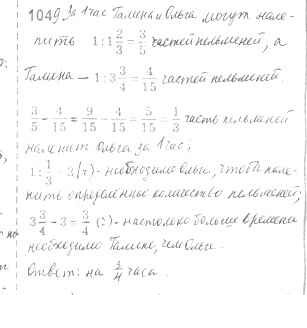 1049. За 1 час Галина и Ольга могут нале-
пить 1 : 1 2/3 = 3/5 частей пельменей, а
Галина – 1 : 3 3/4 = 4/15 частей пельменей.
3/5 - 4/15 = 9/15 - 4/15 = 5/15 = 1/3 часть пельменей
налепит Ольга за 1 час;
1 : 1/3 = 3 (ч) - необходимо Ольге, чтобы нале-
пить определённое количество пельменей;
3 3/4 - 3 = 3/4 (ч) - настолько больше времени
необходимо Галине, чем Ольге.
Ответ: на 3/4 часа.